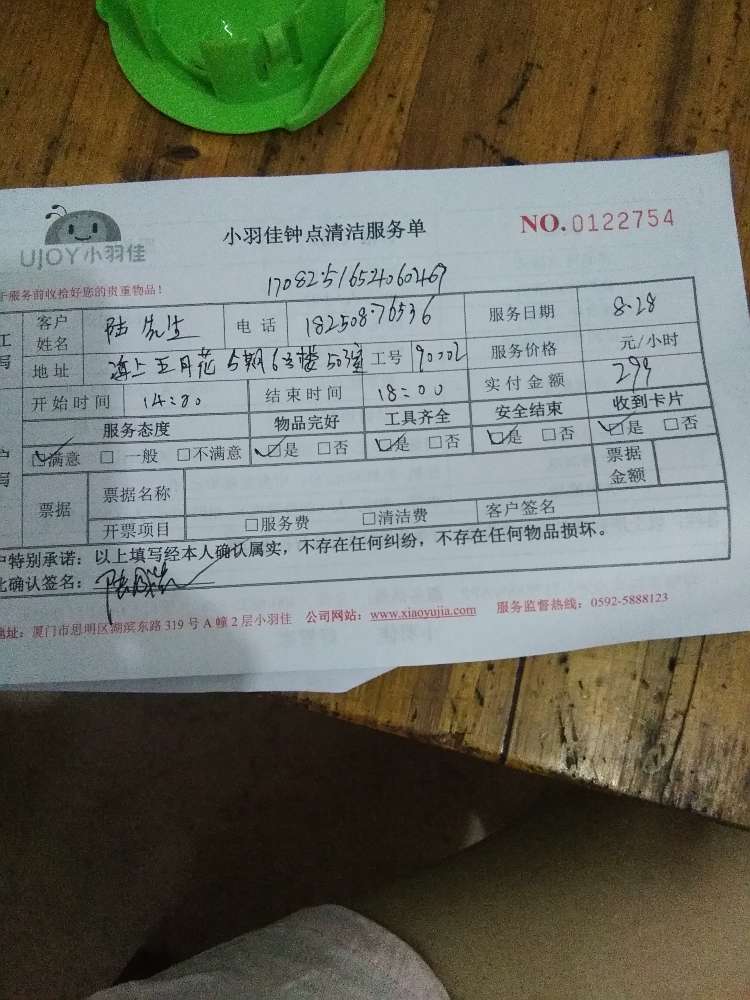 UJOY小羽佳
小羽佳钟点清洁服务单
NO.0122754
于服务前收拾好您的贵重物品!
客户姓名 陆先生 电话 18250876536 服务日期 8.28
地址 海上五月花5期6号楼503室 工号 90002 服务价格 元/小时
开始时间 14:00 结束时间 18:00 实付金额 299
服务态度 物品完好 工具齐全 安全结束 收到卡片
☑满意 □一般 □不满意 ☑是 □否 ☑是 □否 ☑是 □否 ☑是 □否
票据 票据名称 票据金额
开票项目 □服务费 □清洁费 客户签名
户特别承诺:以上填写经本人确认属实,不存在任何纠纷,不存在任何物品损坏。
此确认签名:
地址:厦门市思明区湖滨东路319号A幢2层小羽佳 公司网站:www.xiaoyujia.com 服务监督热线:0592-5888123